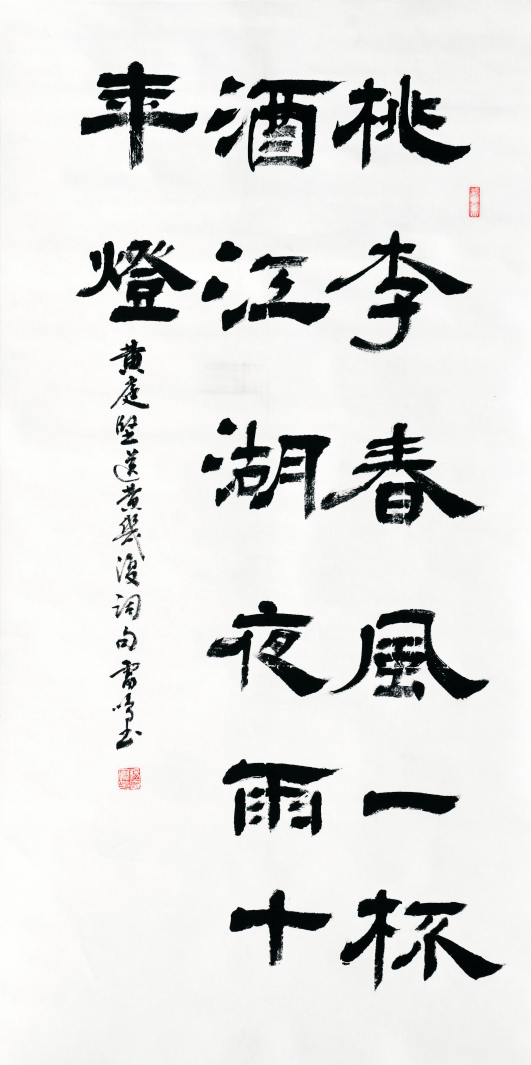 桃李春風一杯
酒江湖夜雨十
年燈
黄庭堅送黄幾復詞句雷鳴书